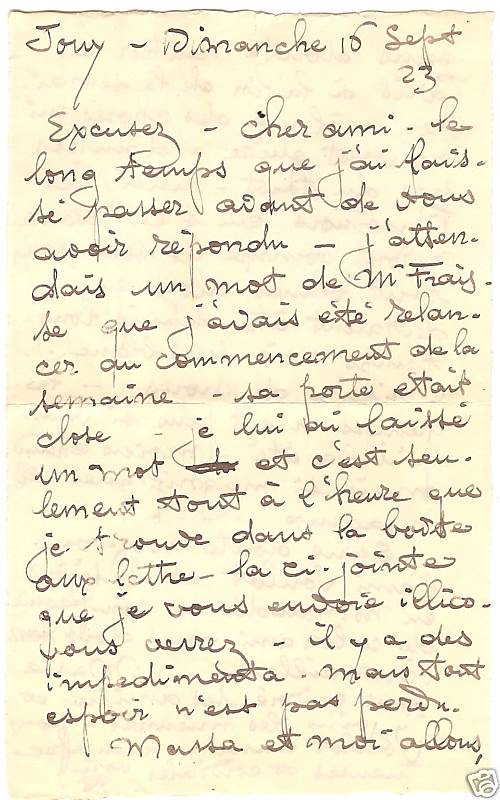 Jouy - Dimanche 16 Sept
23
Excusez - cher ami - le
long temps que j'ai lais-
sé passer avant de vous
avoir répondu - j'atten-
dais un mot de Mr Frais-
se que j'avais été relan-
cer au commencement de la
semaine - sa porte était
close - je lui ai laissé
un mot et c'est seu-
lement tout à l'heure que
je trouve dans la boîte
aux lettre - la ci-jointe
que je vous envoie illico.
vous verrez - il y a des
impedimenta - mais tout
espoir n'est pas perdu.
Massa et moi allons,